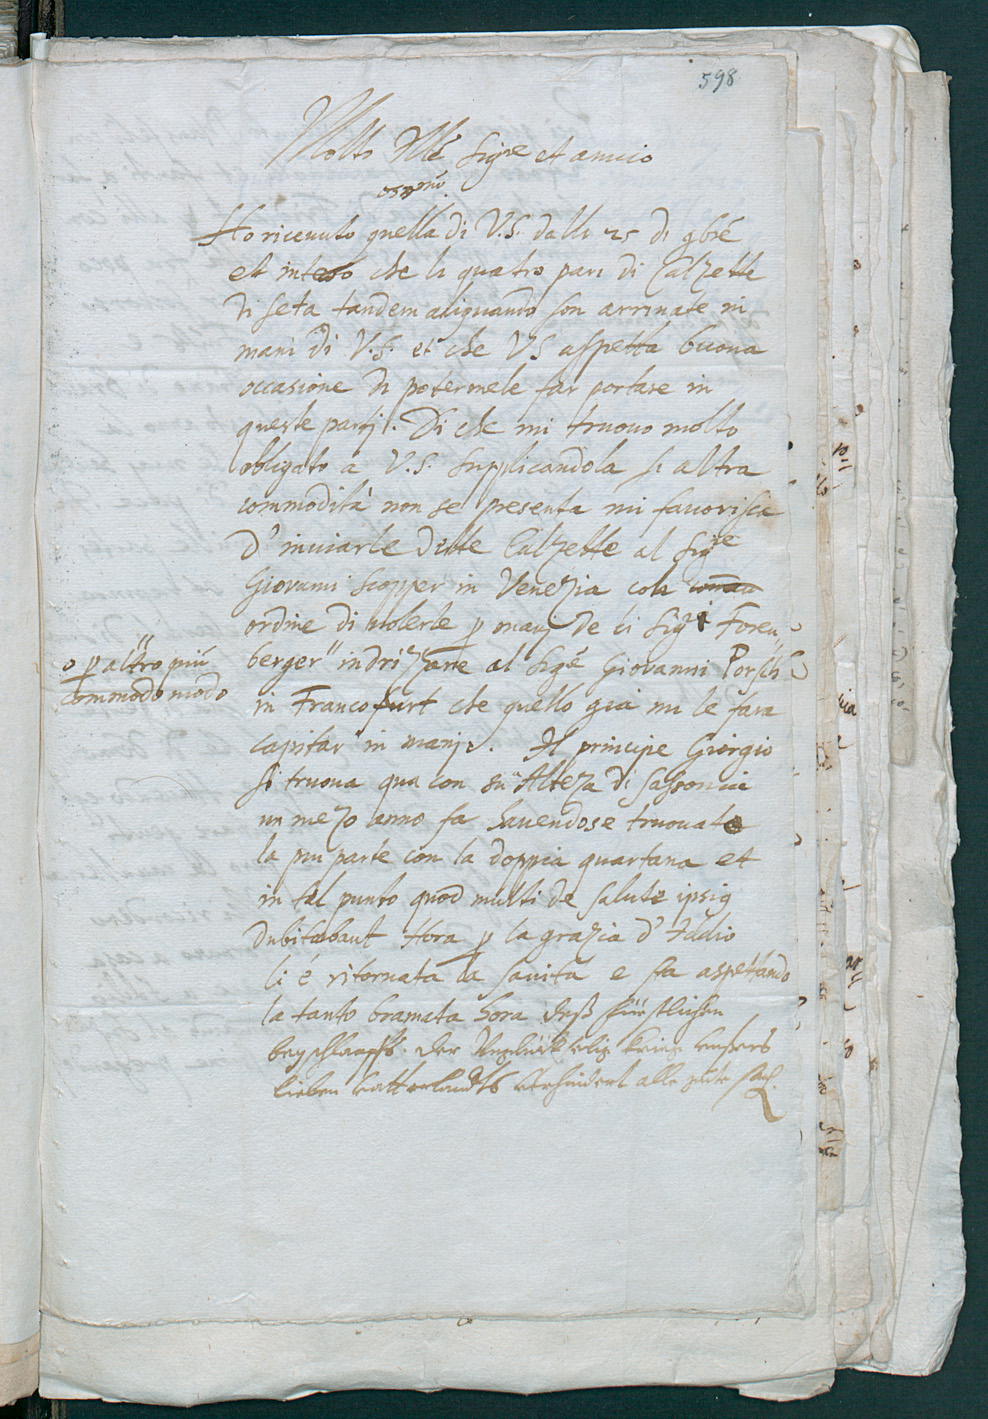 598
Molto Illre Sigre et amico
ossmo.
Ho riceuuto quella di V.S. dalli 25 di 9bre
et inteso che li quatro pari di Calzette
di seta tandem aliquando son arriuate in
mani di V.S. et che VS aspetta buona
occasione di potermele far portare in
queste partj. Di che mi truouo molto
obligato a V.S. supplicandola se altra
commodità non se presenta mi fauorisca
d'inuiarle dette Calzette al Sigre
Giovanni Scopper in Venezia con
ordine di volerle p manj de li Sigri Foren
berger indrizzare al Sigre Giovanni Porsch
o p altro più
commodo modo
in Francofurt che quello già mi le fara
capitar in manj. Il principe Giorgio
si truoua qua con su Alteza di Sassonia
un mezo anno fa hauendose truouato
la piu parte con la doppia quartana et
in tal punto quod multi de salute ipsiq
dubitabant Hora p la grazia d'Iddio
li é ritornata la sanita e sta aspettando
la tanto bramata hora deß fürstlichen
beyschlaffß. der Unglückselig krieg unsers
lieben vatterlandtß verhindert alle gute